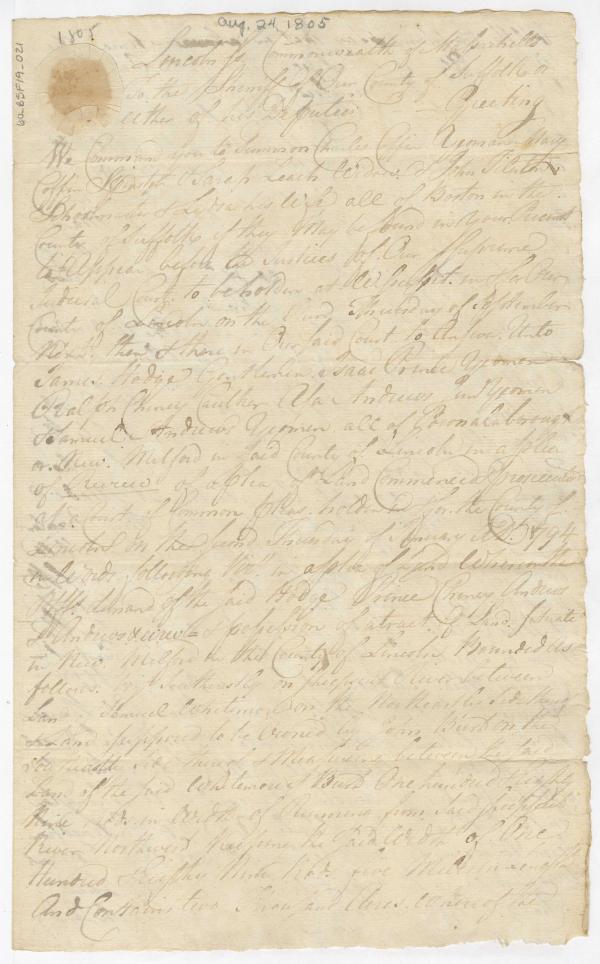 Aug. 24, 1805
1805
60.65F19_021
Lincoln ss Commonwealth of Massachusetts
To the Sheriff of Our County of Suffolk or
either of his Deputies Greeting
We Command you to Summon Charles Coffin Yeoman Mary
Coffin Sarah Leach Widow & John Tileston
Schoolmaster & Lydia his Wife all of Boston in the
County of Suffolk if they May be found in Your Precinct
to Appear before the Justices of Our Supreme
Judicial Court to be holden at Wiscasset in & for Our
County of Lincoln on the Third Thursday of September
Next then & there in Our said Court to Answer Unto
James Hodge Gentleman Isaac Prince Yeoman
Cheney Caulker Asa Andrews Yeoman
& Samuel Andrews Yeomen all of Pownalborough
or New Milford in said County of Lincoln in a plea
of Review of a plea of Land Commenced & Prosecuted
at a Court of Common pleas holden for the County of
Lincoln on the second Thursday of January AD. 1794
in Words following Viz. in a plea of Land Wherein the
demand of the said Hodge Prince Cheney Andrews
& Andrews possession of a tract of Land situate
in New Milford in the County of Lincoln Bounded as
follows. Southeasterly on Sheepscut River between
Land Samuel Whitemore on the Northeasterly side
& Land supposed to be owned by John on the
side thereof Measuring between the said
Land of the said Whitemore & One hundred
Nine rods in Width & Running from said Sheepscut
River Northwest Keeping the said Width of One
Hundred Nine Rods five Miles in length
And Contains two Thousand Acres